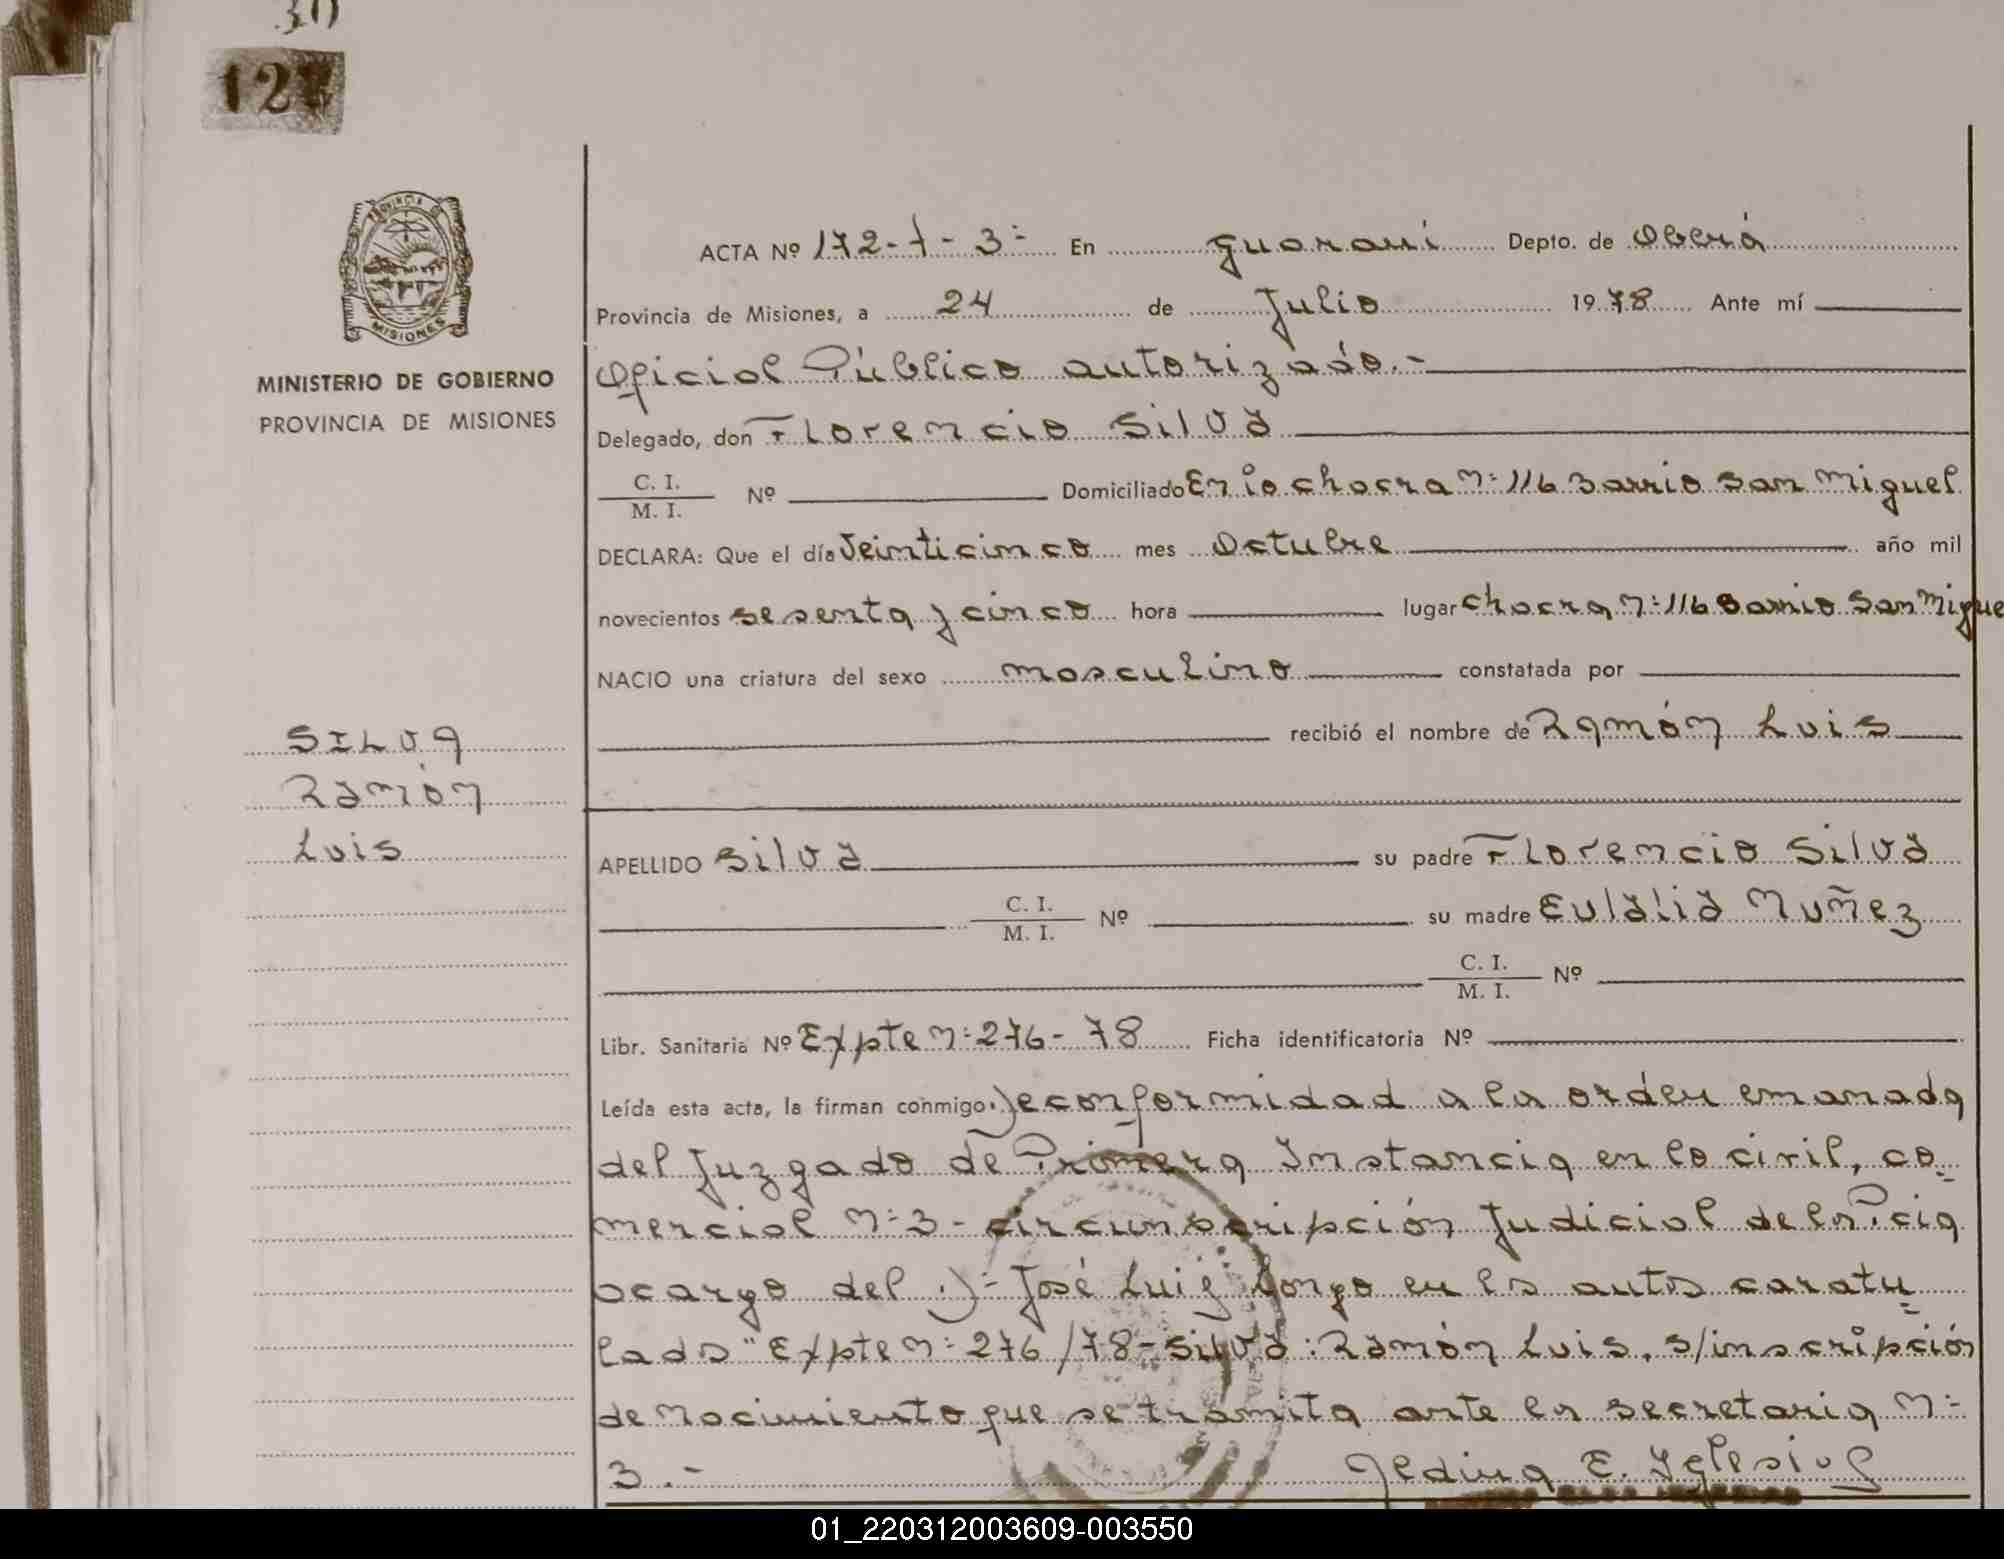 30
127
PROVINCIA D
MISIONES
MINISTERIO DE GOBIERNO
PROVINCIA DE MISIONES
ACTA Nº 172-T-3= En Guarani Depto. de Oberá
Provincia de Misiones, a 24 de Julio 1978 Ante mí
Oficial Público autorizado.-
Delegado, don Florencio Silva
C. I.
M. I. Nº Domiciliado En la chacra N: 116 Barrio San Miguel
DECLARA: Que el día Veinticinco mes Octubre año mil
novecientos sesenta y cinco hora lugar chacra N: 116 Barrio San Migue
NACIO una criatura del sexo masculino constatada por
recibió el nombre de Ramón Luis
SILVA
Ramón
Luis
APELLIDO Silva su padre Florencio Silva
C. I.
M. I. Nº su madre Eulalia Muñez
C. I.
M. I. Nº
Libr. Sanitaria Nº Expte N: 276-78 Ficha identificatoria Nº
Leída esta acta, la firman conmigo. De conformidad a la orden emanada
del Juzgado de Primera Instancia en lo civil, co=
mercial N: 3 - circunscripción Judicial de la Pcia
a cargo del D= José Luis Longo en los autos caratu=
lados "Expte N: 276/78-Silva: Ramón Luis, s/inscripción
de Nacimiento que se tramita ante la secretaria N=
3.- E. Iglesias
01_220312003609-003550